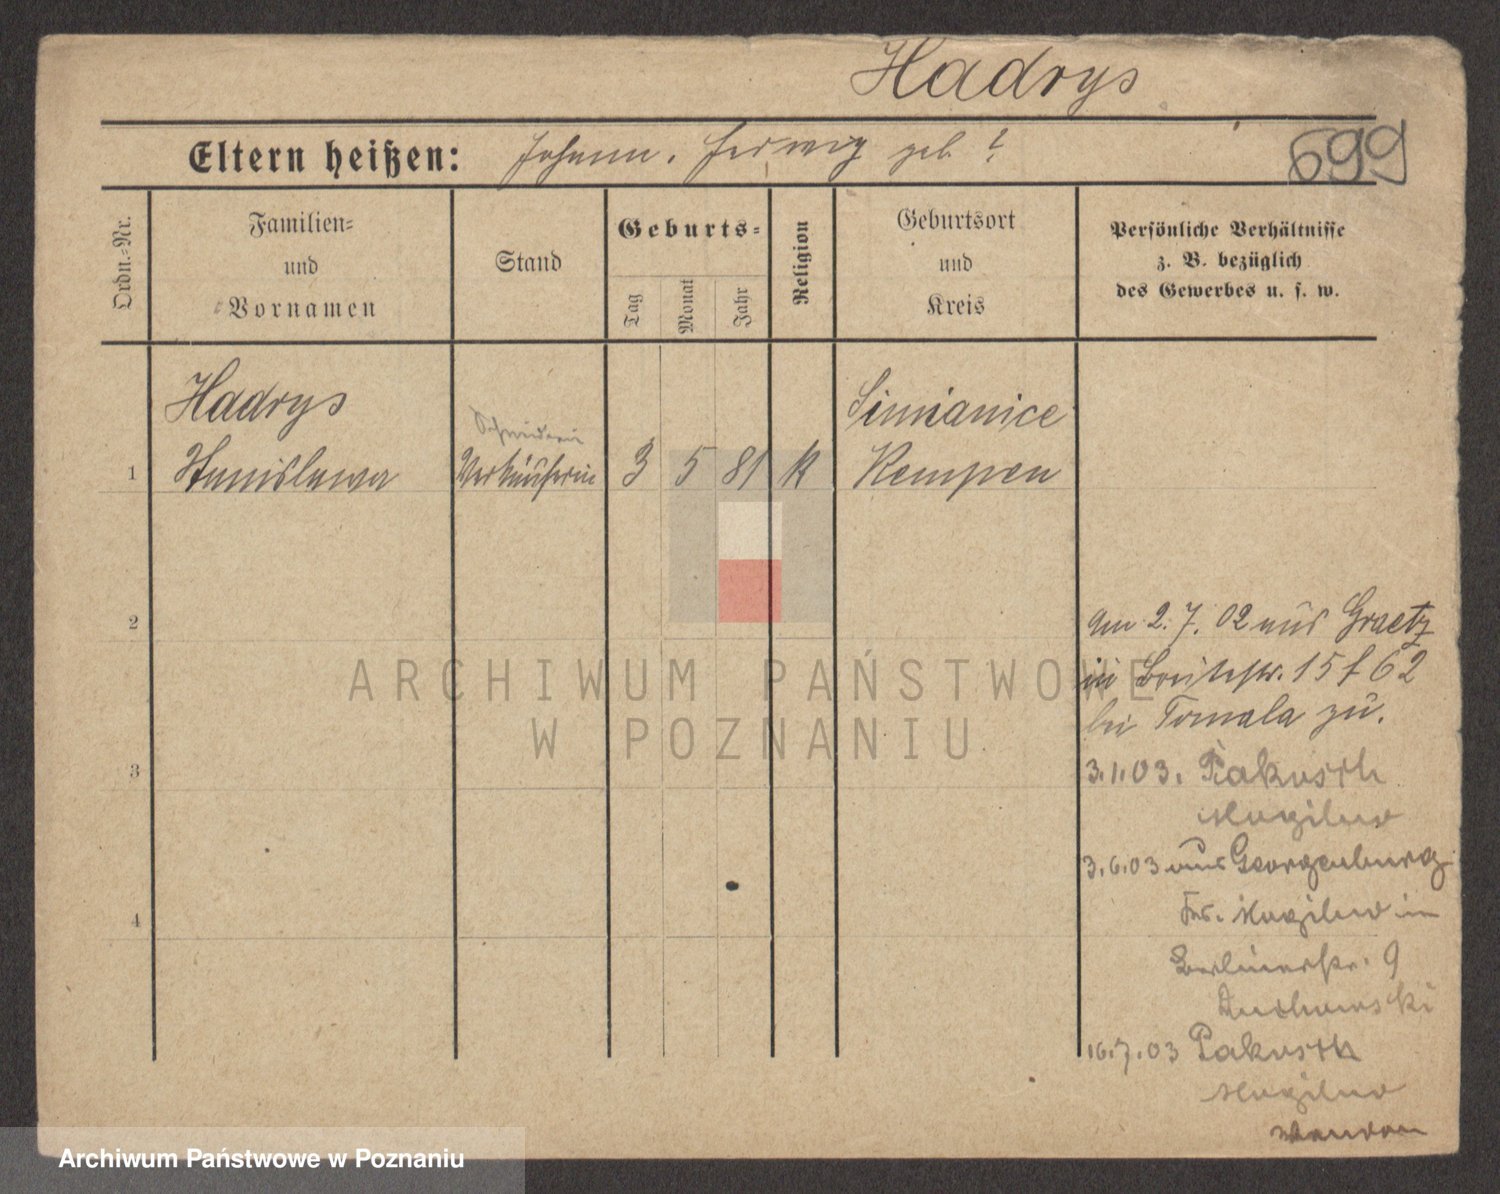 Hadrys
Eltern heißen: Johann. Hedwig geb. ?
699
Ordn.-Nr.
Familien-
und
Vornamen
Stand
Geburts-
Tag
Monat
Jahr
Religion
Geburtsort
und
Kreis
Persönliche Verhältnisse
z. B. bezüglich
des Gewerbes u. s. w.
Hadrys
Siemianice
Schneiderin
1 Stanislawa Verkäuferin 3 5 81 K Kempen
2
am 2. 7. 02 aus Graetz
in Breitestr. 15 f 62
bei Tomala zu.
3
3.1.03. Pakosch
Mogilno
3.6.03 aus Georgenburg
4
Krs. Mogilno in
Berlinerstr. 9
16.7.03 Pakosch
Mogilno
ARCHIWUM PAŃSTWOWE
W POZNANIU
Archiwum Państwowe w Poznaniu